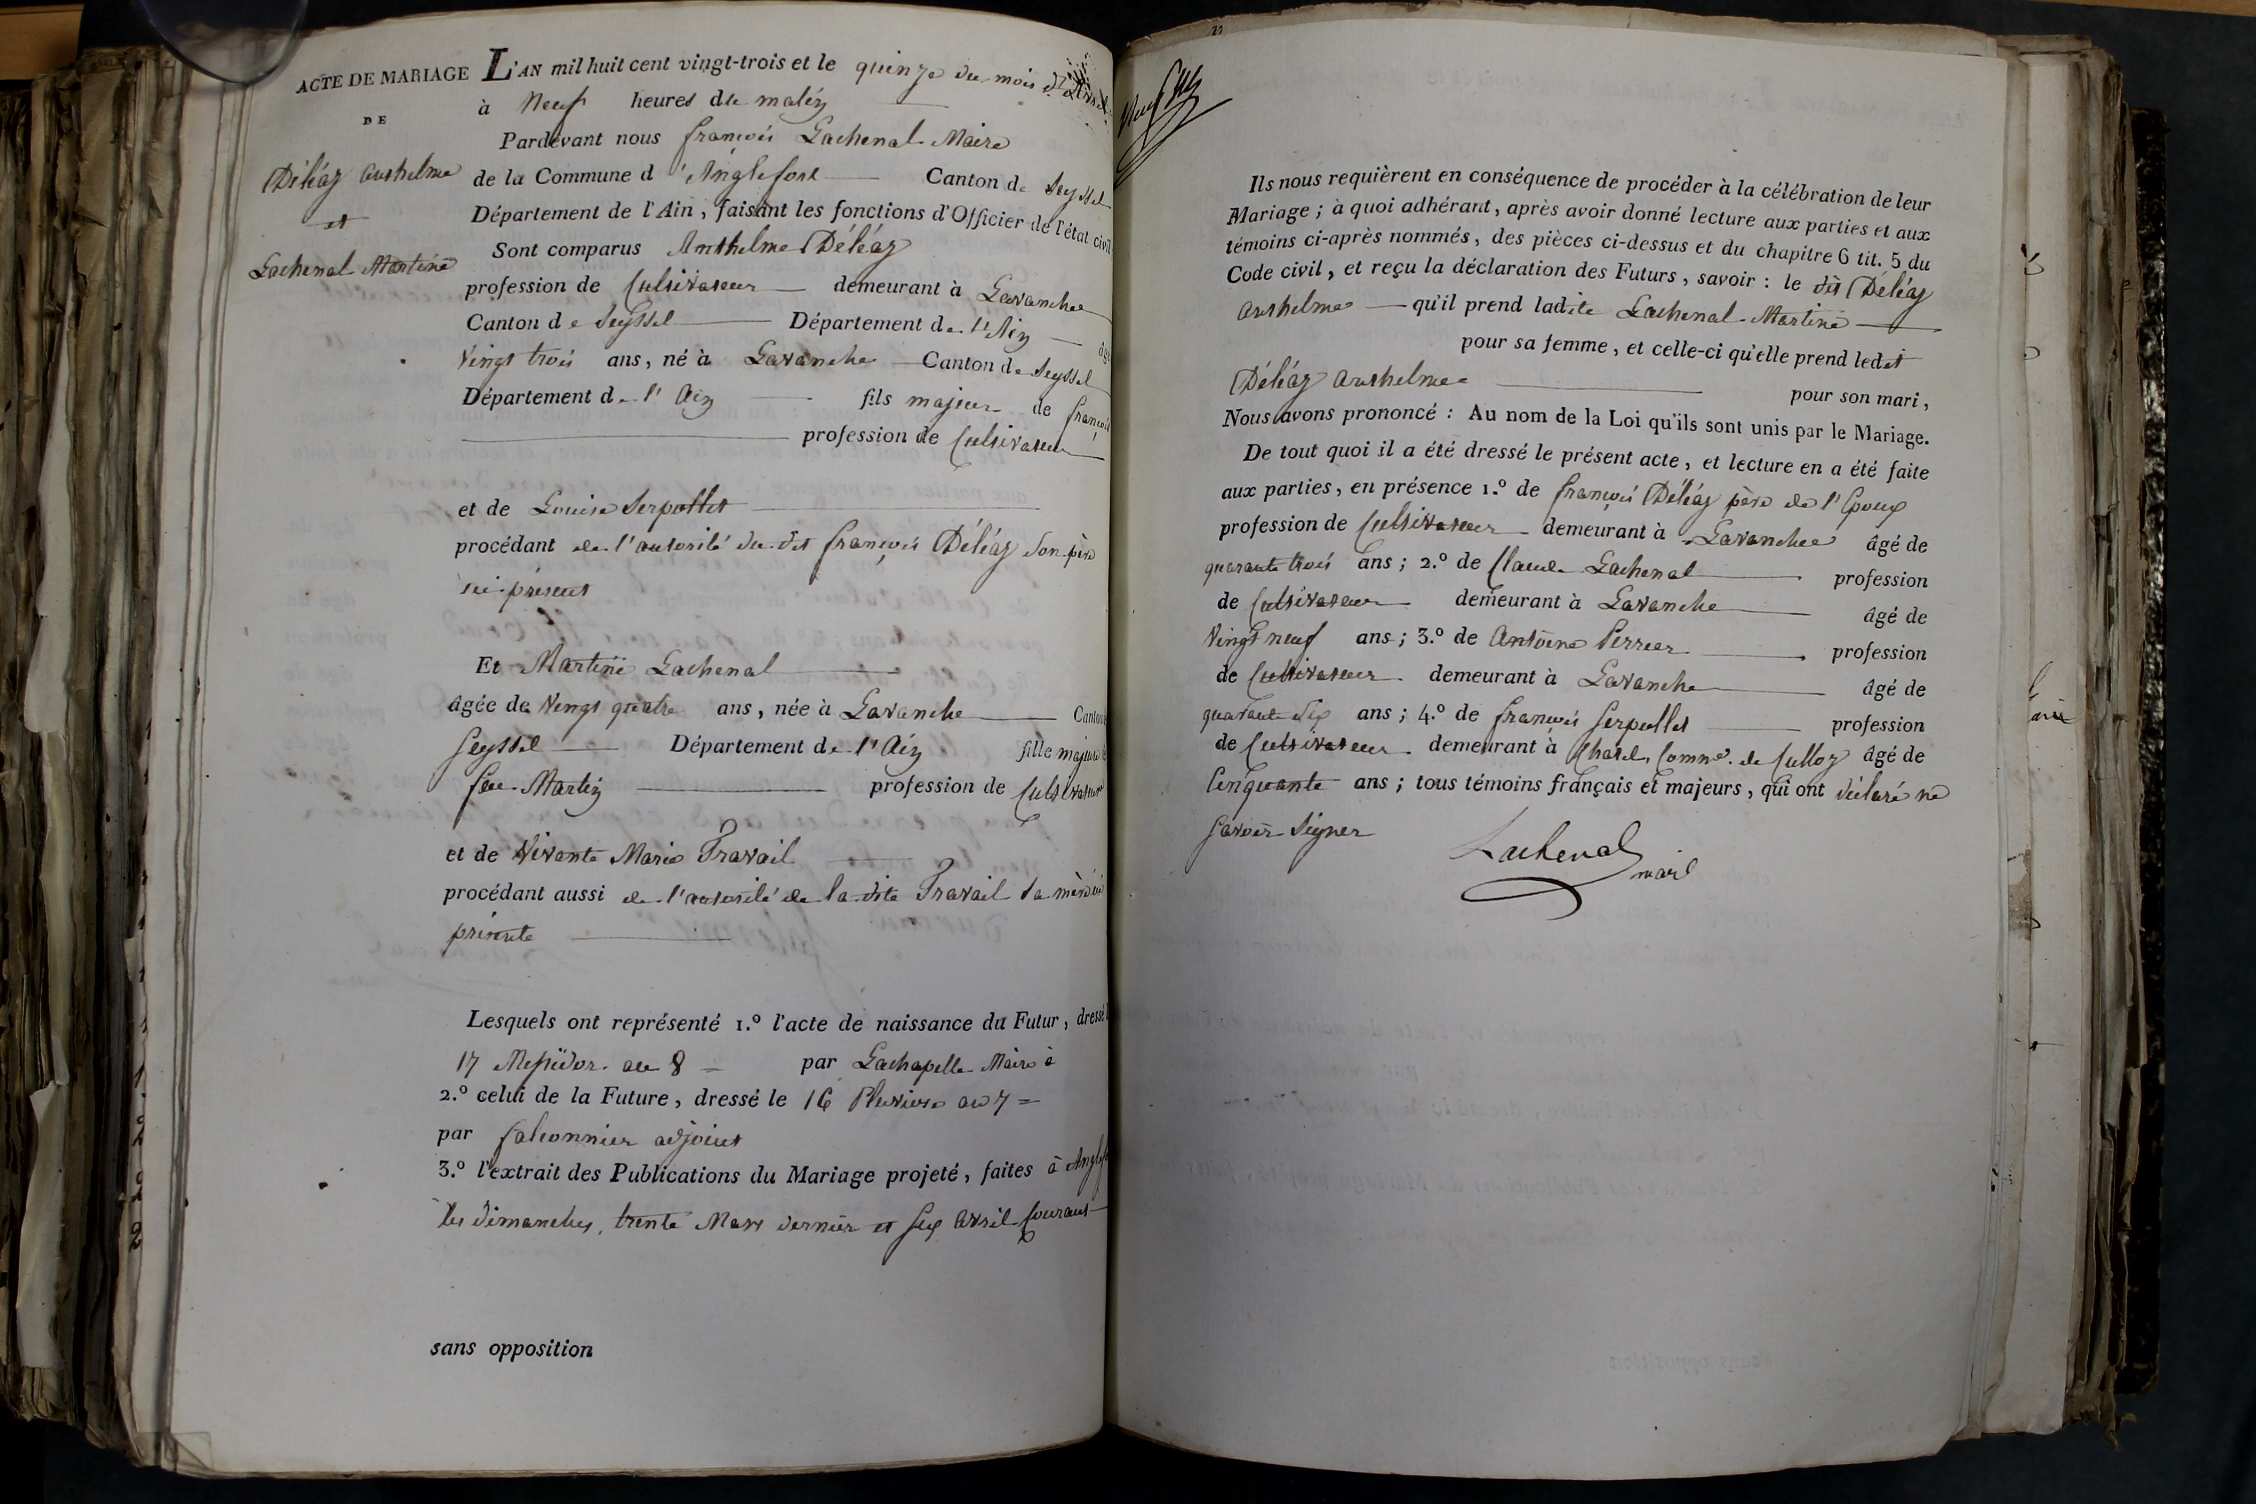 ACTE DE MARIAGE
DE
Déléaz Anthelme
et
Lachenal Martine
L'AN mil huit cent vingt-trois et le quinze du mois d'avril
à Neuf heures du matin
Pardevant nous françois Lachenal Maire
de la Commune d'Anglefort Canton de Seyssel
Département de l'Ain, faisant les fonctions d'Officier de l'état civil
Sont comparus Anthelme Déléaz
profession de Cultivateur demeurant à Lavanche
Canton de Seyssel Département de l'Ain âgé
Vingt trois ans, né à Lavanche Canton de Seyssel
Département de l'Ain fils majeur de françois
profession de Cultivateur
et de Louise Serpollet
procédant de l'autorité du dit françois Déléaz son père
ici présent
Et Martine Lachenal
âgée de Vingt quatre ans, née à Lavanche Canton
Seyssel Département de l'Ain fille majeure
feu Martin profession de Cultivateur
et de Vivante Marie Travail
procédant aussi de l'autorité de la dite Travail sa mère ici
présente
Lesquels ont représenté 1.º l'acte de naissance du Futur, dressé
17 Messidor an 8 par Lachapelle Maire à
2.º celui de la Future, dressé le 16 Pluviose an 7
par falconnier adjoint
3.º l'extrait des Publications du Mariage projeté, faites à Anglefo
les dimanches, trente Mars dernier et six avril Courant
sans opposition
Ils nous requièrent en conséquence de procéder à la célébration de leur
Mariage; à quoi adhérant, après avoir donné lecture aux parties et aux
témoins ci-après nommés, des pièces ci-dessus et du chapitre 6 tit. 5 du
Code civil, et reçu la déclaration des Futurs, savoir: le dit Déléaz
anthelme qu'il prend ladite Lachenal Martine
pour sa femme, et celle-ci qu'elle prend ledit
Déléaz anthelme pour son mari,
Nous avons prononcé: Au nom de la Loi qu'ils sont unis par le Mariage.
De tout quoi il a été dressé le présent acte, et lecture en a été faite
aux parties, en présence 1.º de françois Déléaz père de l'Epoux
profession de Cultivateur demeurant à Lavanche âgé de
quarante trois ans; 2.º de Claude Lachenal profession
de Cultivateur demeurant à Lavanche âgé de
Vingt neuf ans; 3.º de Antoine Perrier profession
de Cultivateur demeurant à Lavanche âgé de
quarante six ans; 4.º de françois Serpollet profession
de Cultivateur demeurant à Chatel, Comne. de Culloz âgé de
Cinquante ans; tous témoins français et majeurs, qui ont déclaré ne
savoir signer
Lachenal
maire